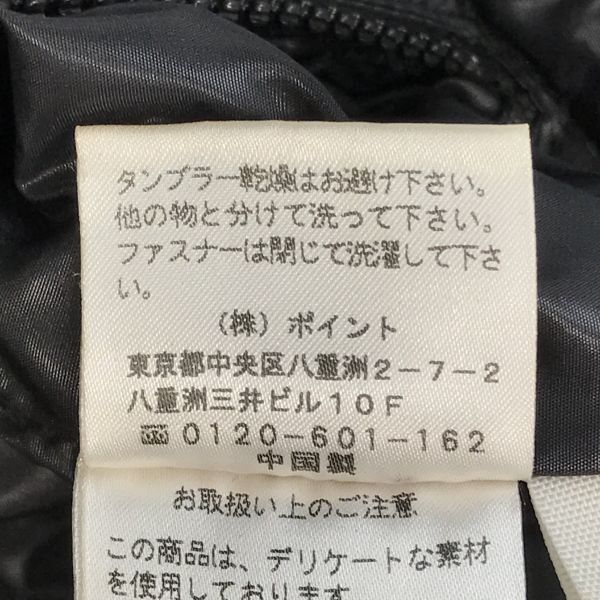 タンブラー乾燥はお避け下さい。
他の物と分けて洗って下さい。
ファスナーは閉じて洗濯して下さ
い。
(株)ポイント
東京都中央区八重洲2-7-2
八重洲三井ビル10F
0120-601-162
中国製
お取扱い上のご注意
この商品は、デリケートな素材
を使用しております